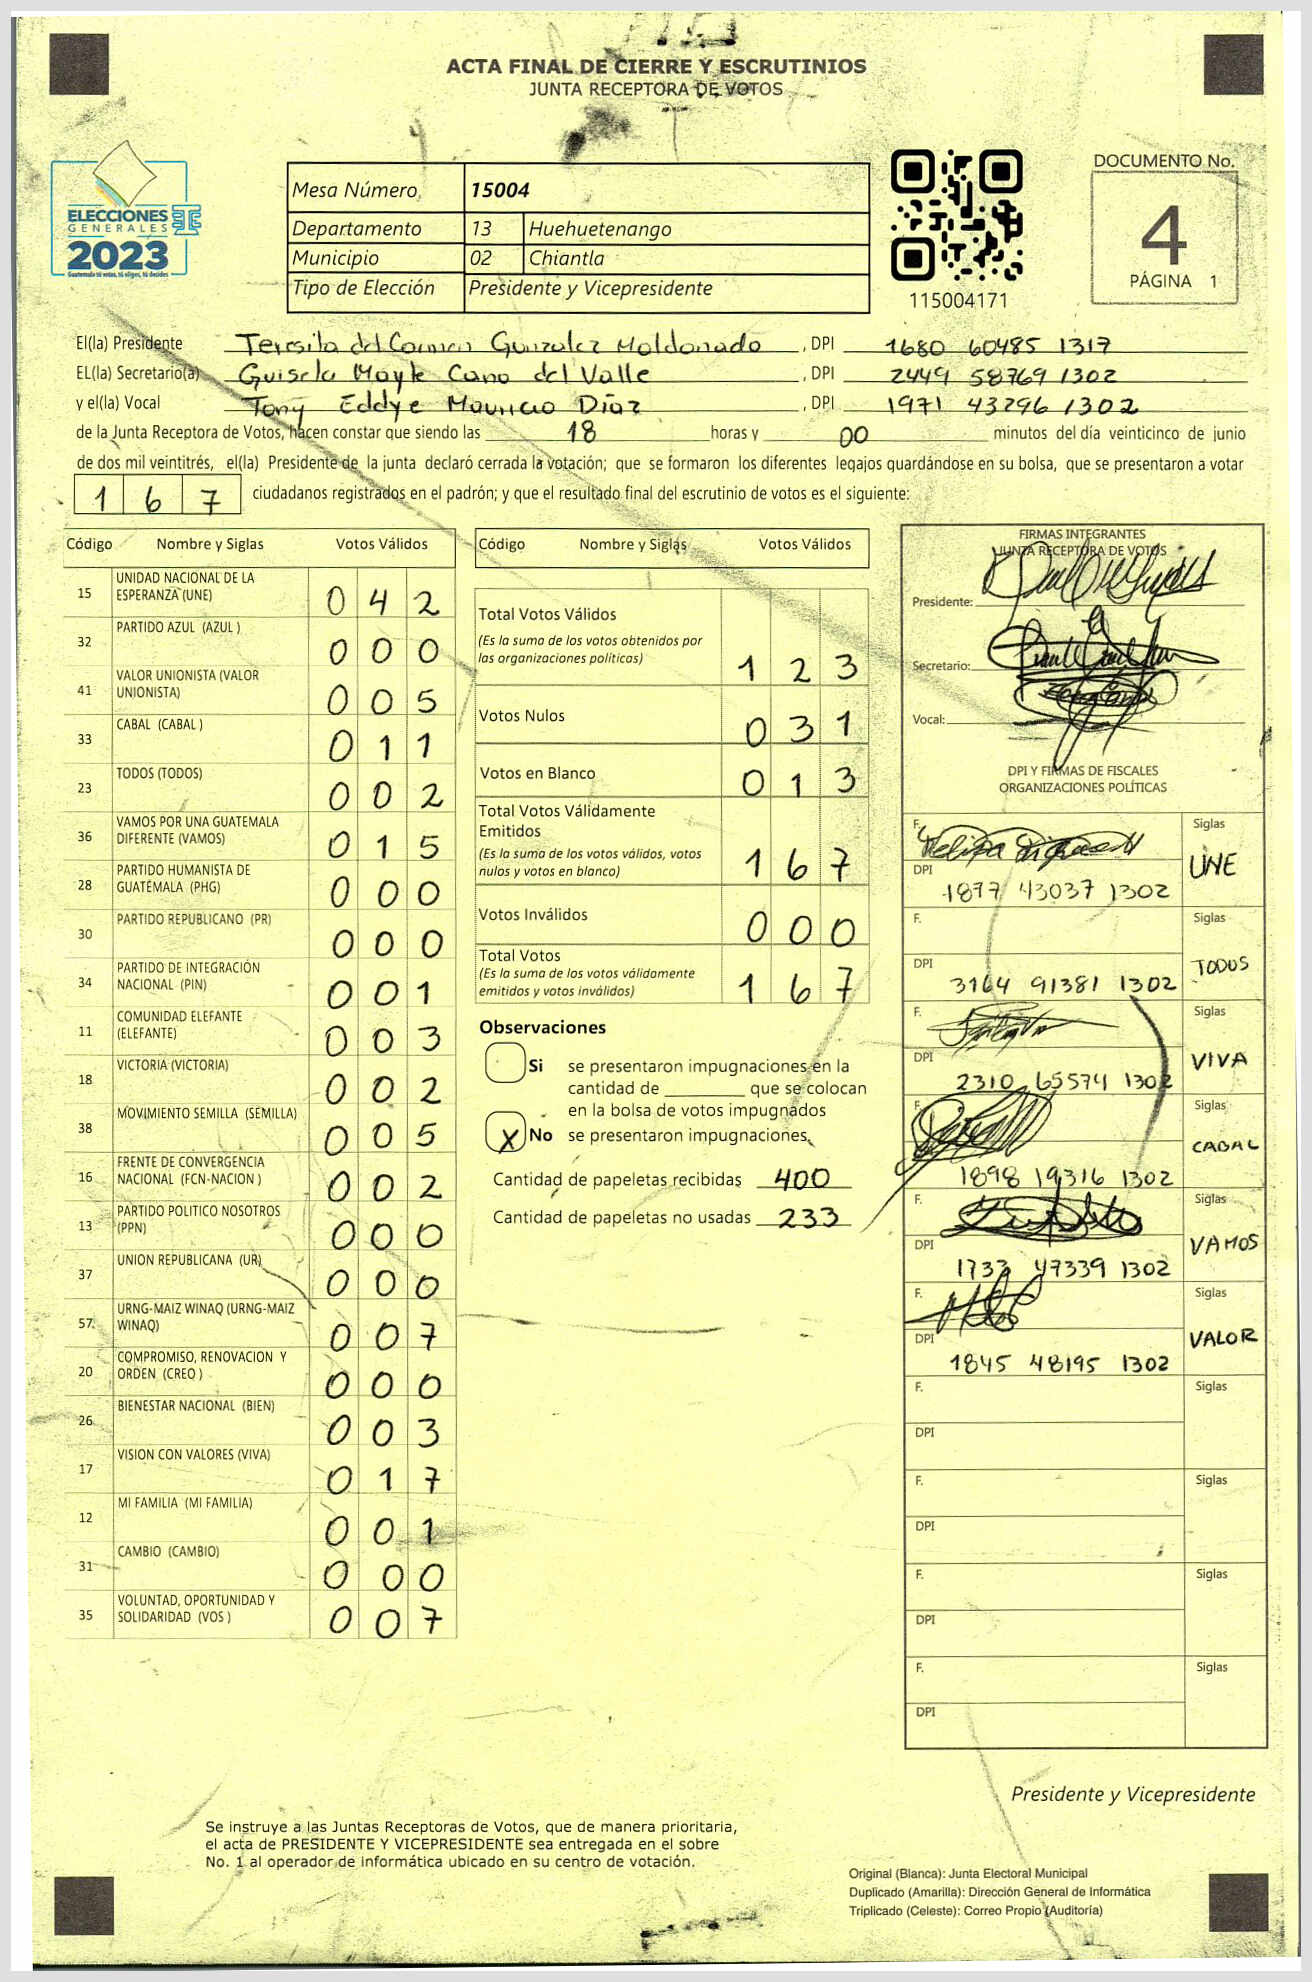 ACTA FINAL DE CIERRE Y ESCRUTINIOS
JUNTA RECEPTORA DE VOTOS
ELECCIONES
GENERALES
2023
Guatemala tú votas, tú eliges, tú decides
Mesa Número 15004
Departamento 13 Huehuetenango
Municipio 02 Chiantla
Tipo de Elección Presidente y Vicepresidente
115004171
DOCUMENTO No.
4
PÁGINA 1
El(la) Presidente Teresita del Carmen Gonzalez Maldonado, DPI 1680 60485 1317
EL(la) Secretario(a) Guisela Mayle Cano del Valle, DPI 2449 58769 1302
y el(la) Vocal Tony Eddye Mauricio Díaz, DPI 1971 43296 1302
de la Junta Receptora de Votos, hacen constar que siendo las 18 horas y 00 minutos del día veinticinco de junio
de dos mil veintitrés, el(la) Presidente de la junta declaró cerrada la votación; que se formaron los diferentes legajos guardándose en su bolsa, que se presentaron a votar
167 ciudadanos registrados en el padrón; y que el resultado final del escrutinio de votos es el siguiente:
Código Nombre y Siglas Votos Válidos
15 UNIDAD NACIONAL DE LA ESPERANZA (UNE) 042
32 PARTIDO AZUL (AZUL ) 000
41 VALOR UNIONISTA (VALOR UNIONISTA) 005
33 CABAL (CABAL ) 011
23 TODOS (TODOS) 002
36 VAMOS POR UNA GUATEMALA DIFERENTE (VAMOS) 015
28 PARTIDO HUMANISTA DE GUATEMALA (PHG) 000
30 PARTIDO REPUBLICANO (PR) 000
34 PARTIDO DE INTEGRACIÓN NACIONAL (PIN) 001
11 COMUNIDAD ELEFANTE (ELEFANTE) 003
18 VICTORIA (VICTORIA) 002
38 MOVIMIENTO SEMILLA (SEMILLA) 005
16 FRENTE DE CONVERGENCIA NACIONAL (FCN-NACION ) 002
13 PARTIDO POLITICO NOSOTROS (PPN) 000
37 UNION REPUBLICANA (UR) 000
57 URNG-MAIZ WINAQ (URNG-MAIZ WINAQ) 007
20 COMPROMISO, RENOVACION Y ORDEN (CREO ) 000
26 BIENESTAR NACIONAL (BIEN) 003
17 VISION CON VALORES (VIVA) 017
12 MI FAMILIA (MI FAMILIA) 001
31 CAMBIO (CAMBIO) 000
35 VOLUNTAD, OPORTUNIDAD Y SOLIDARIDAD (VOS ) 007
Código Nombre y Siglas Votos Válidos
Total Votos Válidos
(Es la suma de los votos obtenidos por
las organizaciones políticas) 123
Votos Nulos 031
Votos en Blanco 013
Total Votos Válidamente
Emitidos
(Es la suma de los votos válidos, votos
nulos y votos en blanco) 167
Votos Inválidos 000
Total Votos
(Es la suma de los votos válidamente
emitidos y votos inválidos) 167
Observaciones
Si se presentaron impugnaciones en la
cantidad de ________ que se colocan
en la bolsa de votos impugnados
X No se presentaron impugnaciones
Cantidad de papeletas recibidas 400
Cantidad de papeletas no usadas 233
FIRMAS INTEGRANTES
JUNTA RECEPTORA DE VOTOS
Presidente:
Secretario:
Vocal:
DPI Y FIRMAS DE FISCALES
ORGANIZACIONES POLÍTICAS
F. Siglas UNE
DPI 1877 43037 1302
F. Siglas TODOS
DPI 3164 91381 1302
F. Siglas VIVA
DPI 2310 65574 1302
F. Siglas CABAL
1898 19316 1302
F. Siglas VAMOS
DPI 1733 47339 1302
F. Siglas VALOR
DPI 1845 48195 1302
F. Siglas
DPI
F. Siglas
DPI
F. Siglas
DPI
F. Siglas
DPI
Presidente y Vicepresidente
Se instruye a las Juntas Receptoras de Votos, que de manera prioritaria,
el acta de PRESIDENTE Y VICEPRESIDENTE sea entregada en el sobre
No. 1 al operador de informática ubicado en su centro de votación.
Original (Blanca): Junta Electoral Municipal
Duplicado (Amarilla): Dirección General de Informática
Triplicado (Celeste): Correo Propio (Auditoría)